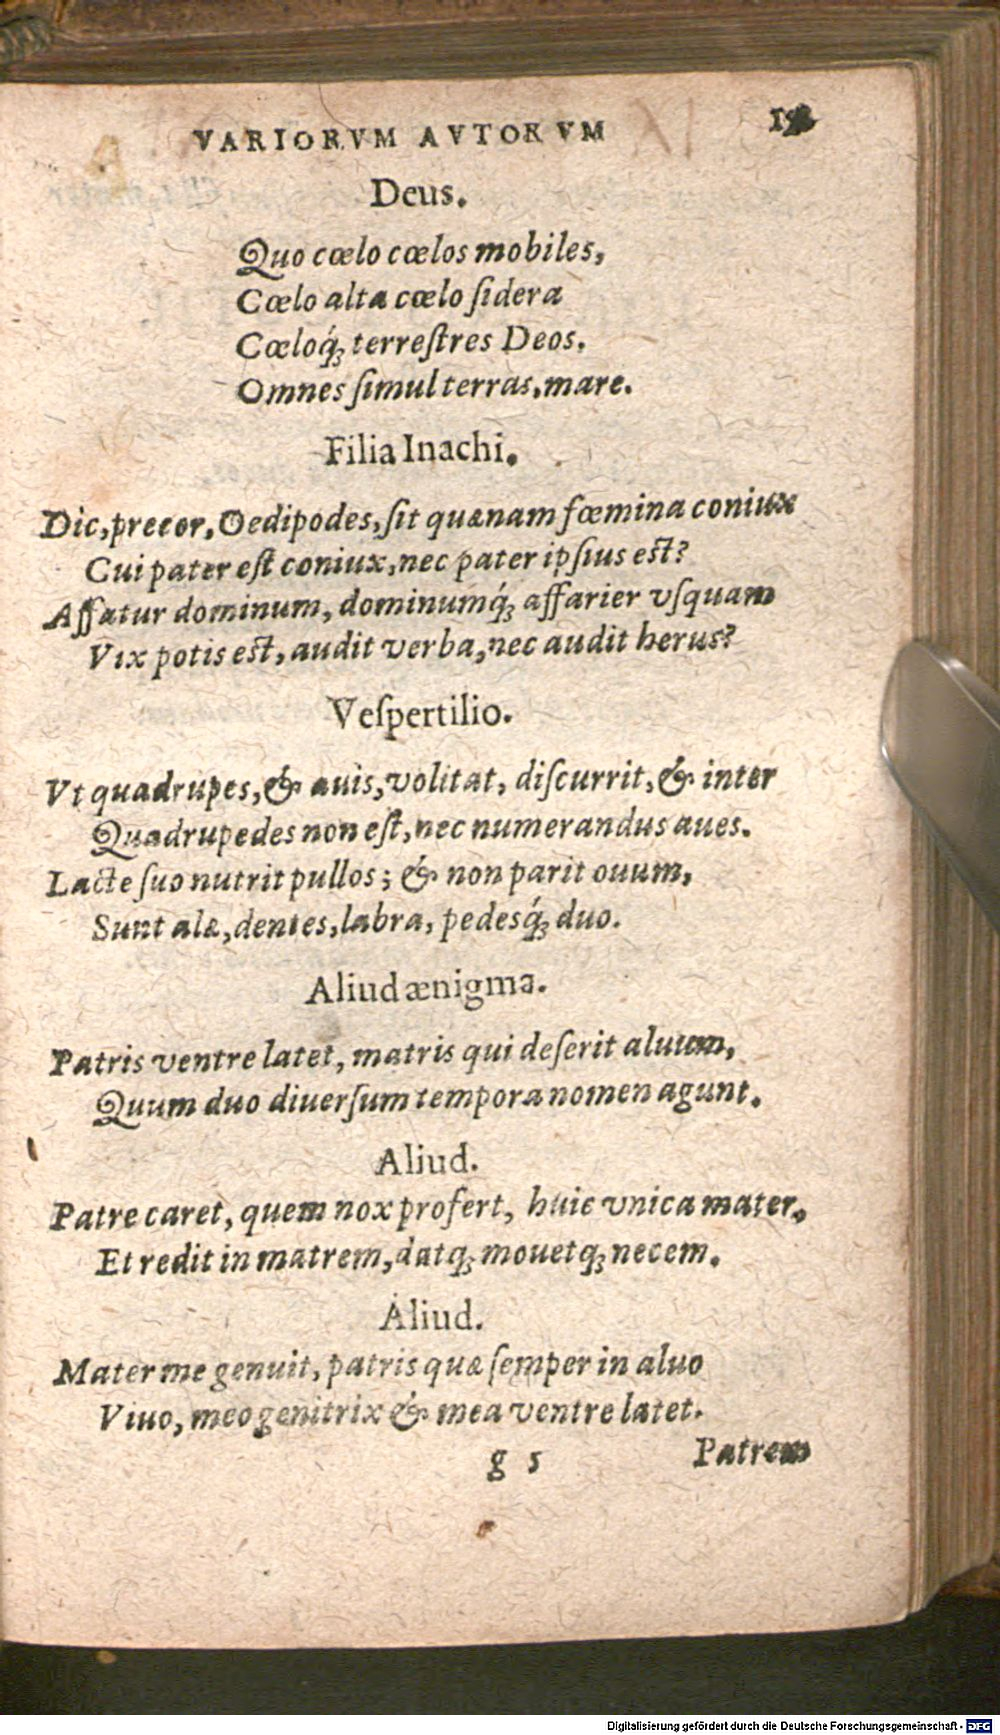 VARIORVM AVTORVM
Deus.
Quo cœlo cœlos mobiles,
Cœlo alta cœlo ſidera
Cœloq́; terreſtres Deos.
Omnes ſimul terras, mare.
Filia Inachi.
Dic, precor, Oedipodes, ſit quænam fœmina coniux
Cui pater eſt coniux, nec pater ipſius eſt?
Affatur dominum, dominumq́; affarier vſquam
Vix potis eſt, audit verba, nec audit herus?
Veſpertilio.
Vt quadrupes, & auis, volitat, diſcurrit, & inter
Quadrupedes non eſt, nec numerandus aues.
Lacte ſuo nutrit pullos; & non parit ouum,
Sunt alæ, dentes, labra, pedesq́; duo.
Aliud ænigma.
Patris ventre latet, matris qui deſerit aluum,
Quum duo diuerſum tempora nomen agunt.
Aliud.
Patre caret, quem nox profert, huic vnica mater,
Et redit in matrem, datq; mouetq; necem.
Aliud.
Mater me genuit, patris quæ ſemper in aluo
Viuo, meo genitrix & mea ventre latet.
g 5 Patrem
Digitalisierung gefördert durch die Deutsche Forschungsgemeinschaft - DFG